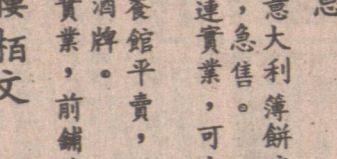 意大利薄餅
，急售。
連實業，可
餐館平賣，
酒牌。
實業，前鋪
栢文